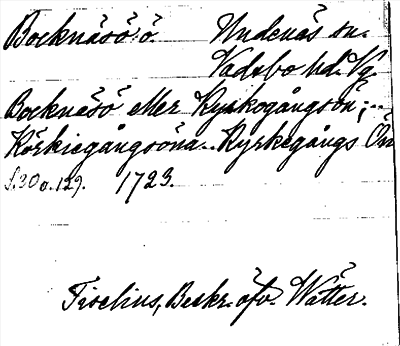 Bocknäsö ö. Undenäs sn.
Vadsbo hd. Vg.
Bocknäsö eller Kyrkogångsön; ..
Körkiegångsöna .. Kyrkegångs Ön
s. 30 o. 129. 1723.
Tiselius, Beskr. öfv. Wätter.